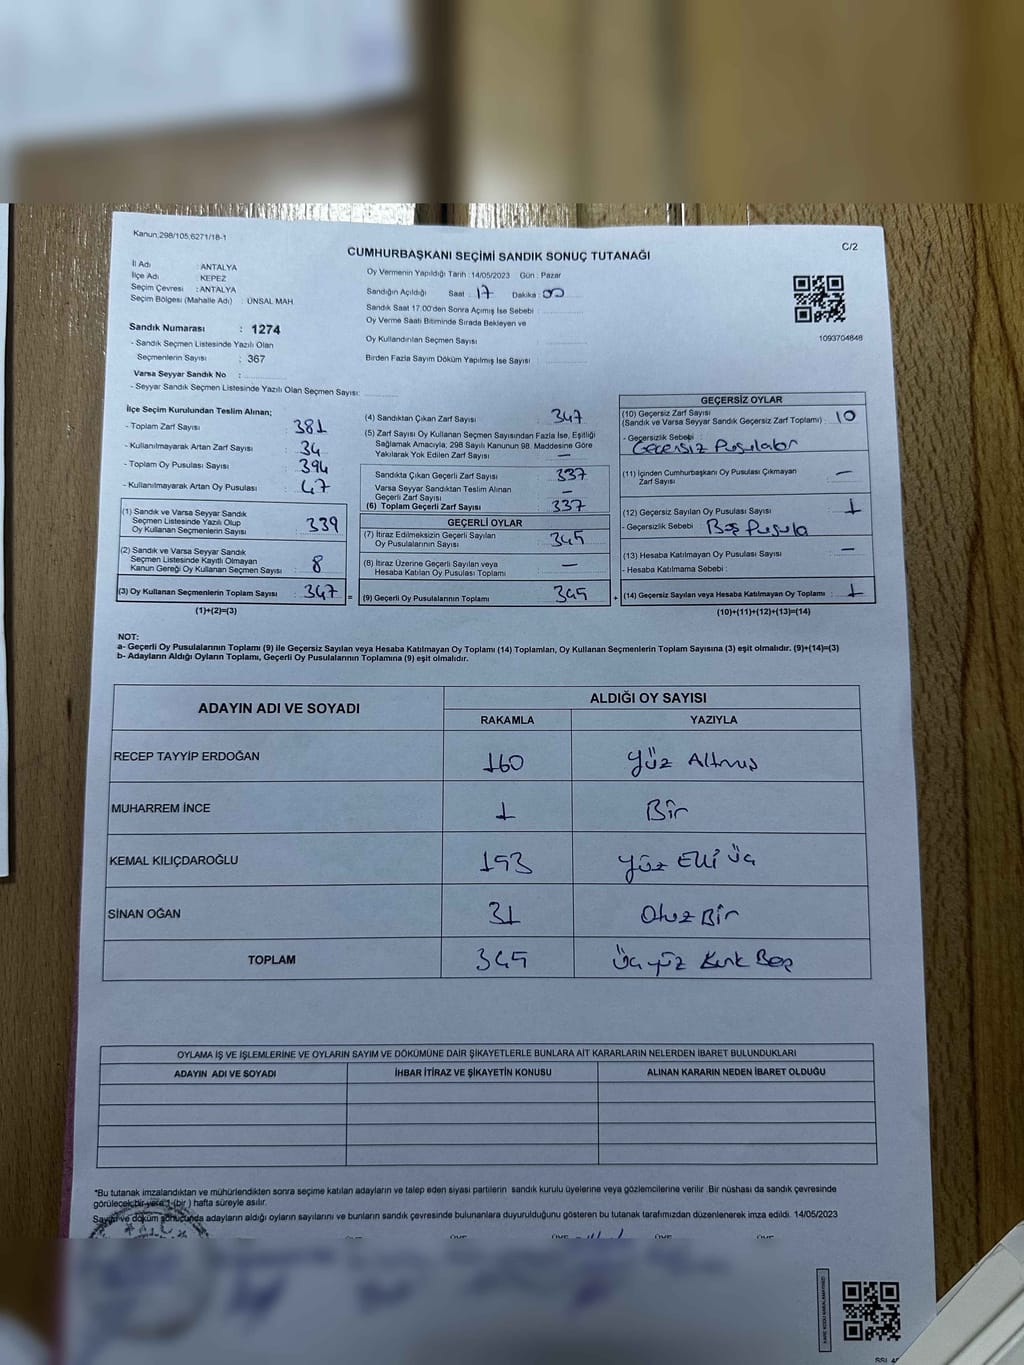 Kanun;298/105,6271/18-1
C/2
CUMHURBAŞKANI SEÇİMİ SANDIK SONUÇ TUTANAĞI
İl Adı : ANTALYA
İlçe Adı : KEPEZ
Seçim Çevresi : ANTALYA
Seçim Bölgesi (Mahalle Adı) : ÜNSAL MAH
Sandık Numarası : 1274
- Sandık Seçmen Listesinde Yazılı Olan
Seçmenlerin Sayısı : 367
Varsa Seyyar Sandık No :
- Seyyar Sandık Seçmen Listesinde Yazılı Olan Seçmen Sayısı:
Oy Vermenin Yapıldığı Tarih : 14/05/2023 Gün : Pazar
Sandığın Açıldığı Saat : 17 Dakika : 00
Sandık Saat 17.00'den Sonra Açımış İse Sebebi :
Oy Verme Saati Bitiminde Sırada Bekleyen ve
Oy Kullandırılan Seçmen Sayısı
Birden Fazla Sayım Döküm Yapılmış İse Sayısı :
1093704848
İlçe Seçim Kurulundan Teslim Alınan;
- Toplam Zarf Sayısı : 381
- Kullanılmayarak Artan Zarf Sayısı : 34
- Toplam Oy Pusulası Sayısı : 394
- Kullanılmayarak Artan Oy Pusulası : 47
(1) Sandık ve Varsa Seyyar Sandık
Seçmen Listesinde Yazılı Olup
Oy Kullanan Seçmenlerin Sayısı : 339
(2) Sandık ve Varsa Seyyar Sandık
Seçmen Listesinde Kayıtlı Olmayan
Kanun Gereği Oy Kullanan Seçmen Sayısı : 8
(3) Oy Kullanan Seçmenlerin Toplam Sayısı : 347 =
(1)+(2)=(3)
(4) Sandıktan Çıkan Zarf Sayısı : 347
(5) Zarf Sayısı Oy Kullanan Seçmen Sayısından Fazla İse, Eşitliği
Sağlamak Amacıyla; 298 Sayılı Kanunun 98. Maddesine Göre
Yakılarak Yok Edilen Zarf Sayısı : —
Sandıkta Çıkan Geçerli Zarf Sayısı : 337
Varsa Seyyar Sandıktan Teslim Alınan
Geçerli Zarf Sayısı : —
(6) Toplam Geçerli Zarf Sayısı : 337
GEÇERLİ OYLAR
(7) İtiraz Edilmeksizin Geçerli Sayılan
Oy Pusulalarının Sayısı : 345
(8) İtiraz Üzerine Geçerli Sayılan veya
Hesaba Katılan Oy Pusulası Toplamı : —
(9) Geçerli Oy Pusulalarının Toplamı : 345 +
GEÇERSİZ OYLAR
(10) Geçersiz Zarf Sayısı
(Sandık ve Varsa Seyyar Sandık Geçersiz Zarf Toplamı) : 10
- Geçersizlik Sebebi :
Geçersiz Pusulalar
(11) İçinden Cumhurbaşkanı Oy Pusulası Çıkmayan
Zarf Sayısı : —
(12) Geçersiz Sayılan Oy Pusulası Sayısı : 1
- Geçersizlik Sebebi : Boş Pusula
(13) Hesaba Katılmayan Oy Pusulası Sayısı : —
- Hesaba Katılmama Sebebi :
(14) Geçersiz Sayılan veya Hesaba Katılmayan Oy Toplamı : 1
(10)+(11)+(12)+(13)=(14)
NOT:
a- Geçerli Oy Pusulalarının Toplamı (9) ile Geçersiz Sayılan veya Hesaba Katılmayan Oy Toplamı (14) Toplamları, Oy Kullanan Seçmenlerin Toplam Sayısına (3) eşit olmalıdır. (9)+(14)=(3)
b- Adayların Aldığı Oyların Toplamı, Geçerli Oy Pusulalarının Toplamına (9) eşit olmalıdır.
ADAYIN ADI VE SOYADI
ALDIĞI OY SAYISI
RAKAMLA YAZIYLA
RECEP TAYYİP ERDOĞAN 160 Yüz Altmış
MUHARREM İNCE 1 Bir
KEMAL KILIÇDAROĞLU 153 Yüz Elli Üç
SİNAN OĞAN 31 Otuz Bir
TOPLAM 345 Üç yüz Kırk Beş
OYLAMA İŞ VE İŞLEMLERİNE VE OYLARIN SAYIM VE DÖKÜMÜNE DAİR ŞİKAYETLERLE BUNLARA AİT KARARLARIN NELERDEN İBARET BULUNDUKLARI
ADAYIN ADI VE SOYADI İHBAR İTİRAZ VE ŞİKAYETİN KONUSU ALINAN KARARIN NEDEN İBARET OLDUĞU
"Bu tutanak imzalandıktan ve mühürlendikten sonra seçime katılan adayların ve talep eden siyasi partilerin sandık kurulu üyelerine veya gözlemcilerine verilir .Bir nüshası da sandık çevresinde
görülecek bir yere 1 (bir ) hafta süreyle asılır.
Sayım ve döküm sonucunda adayların aldığı oyların sayılarını ve bunların sandık çevresinde bulunanlara duyurulduğunu gösteren bu tutanak tarafımızdan düzenlenerek imza edildi. 14/05/2023